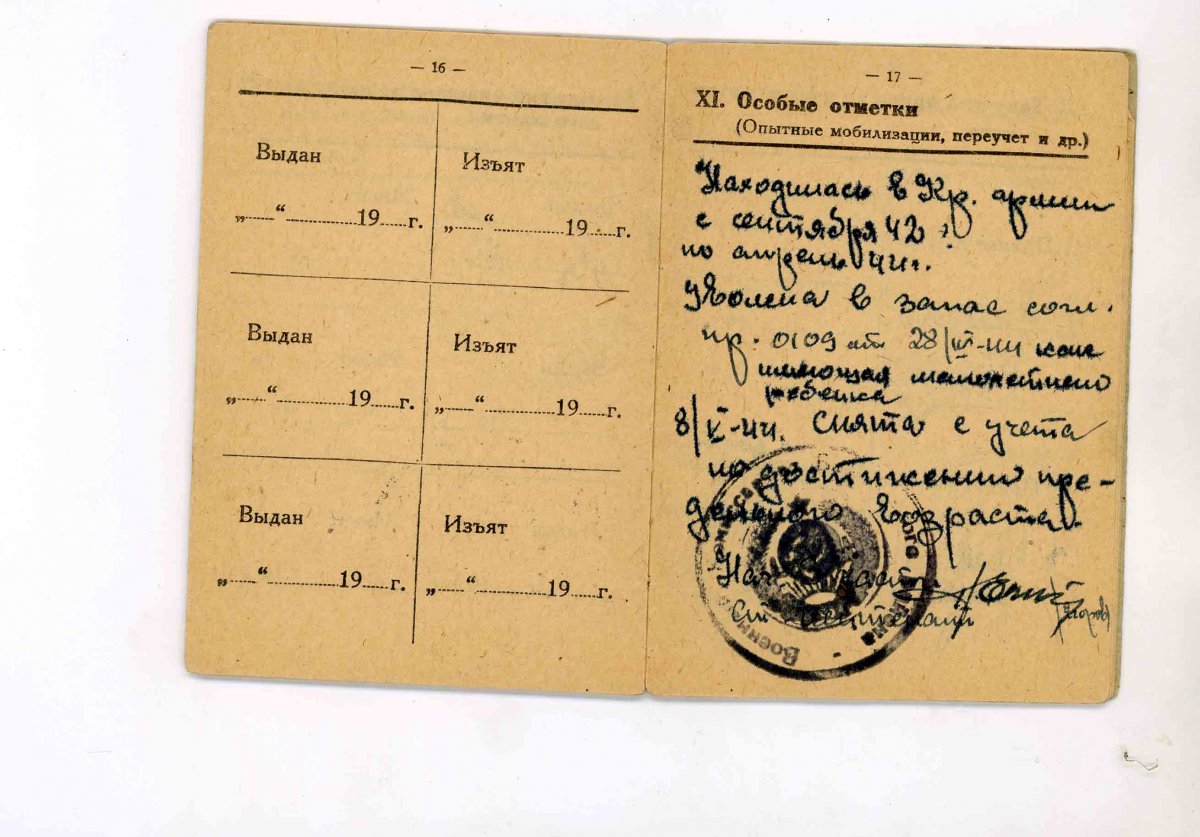 — 16 —
Выдан Изъят
„......“ ............ 19 ..... г. „......“ ............ 19 ..... г.
Выдан Изъят
„......“ ............ 19 ..... г. „......“ ............ 19 ..... г.
Выдан Изъят
„......“ ............ 19 ..... г. „......“ ............ 19 ..... г.
— 17 —
XI. Особые отметки
(Опытные мобилизации, переучет и др.)
Находилась в Кр. армии
с сентября 42 г.
по апрель 44 г.
Уволена в запас согл.
пр. 0109 от 28/III-44 как
имеющая малолетнего
ребенка
8/V-44. Снята с учета
по достижении пре-
дельного возраста.
Нач.
Ст. лейтенант